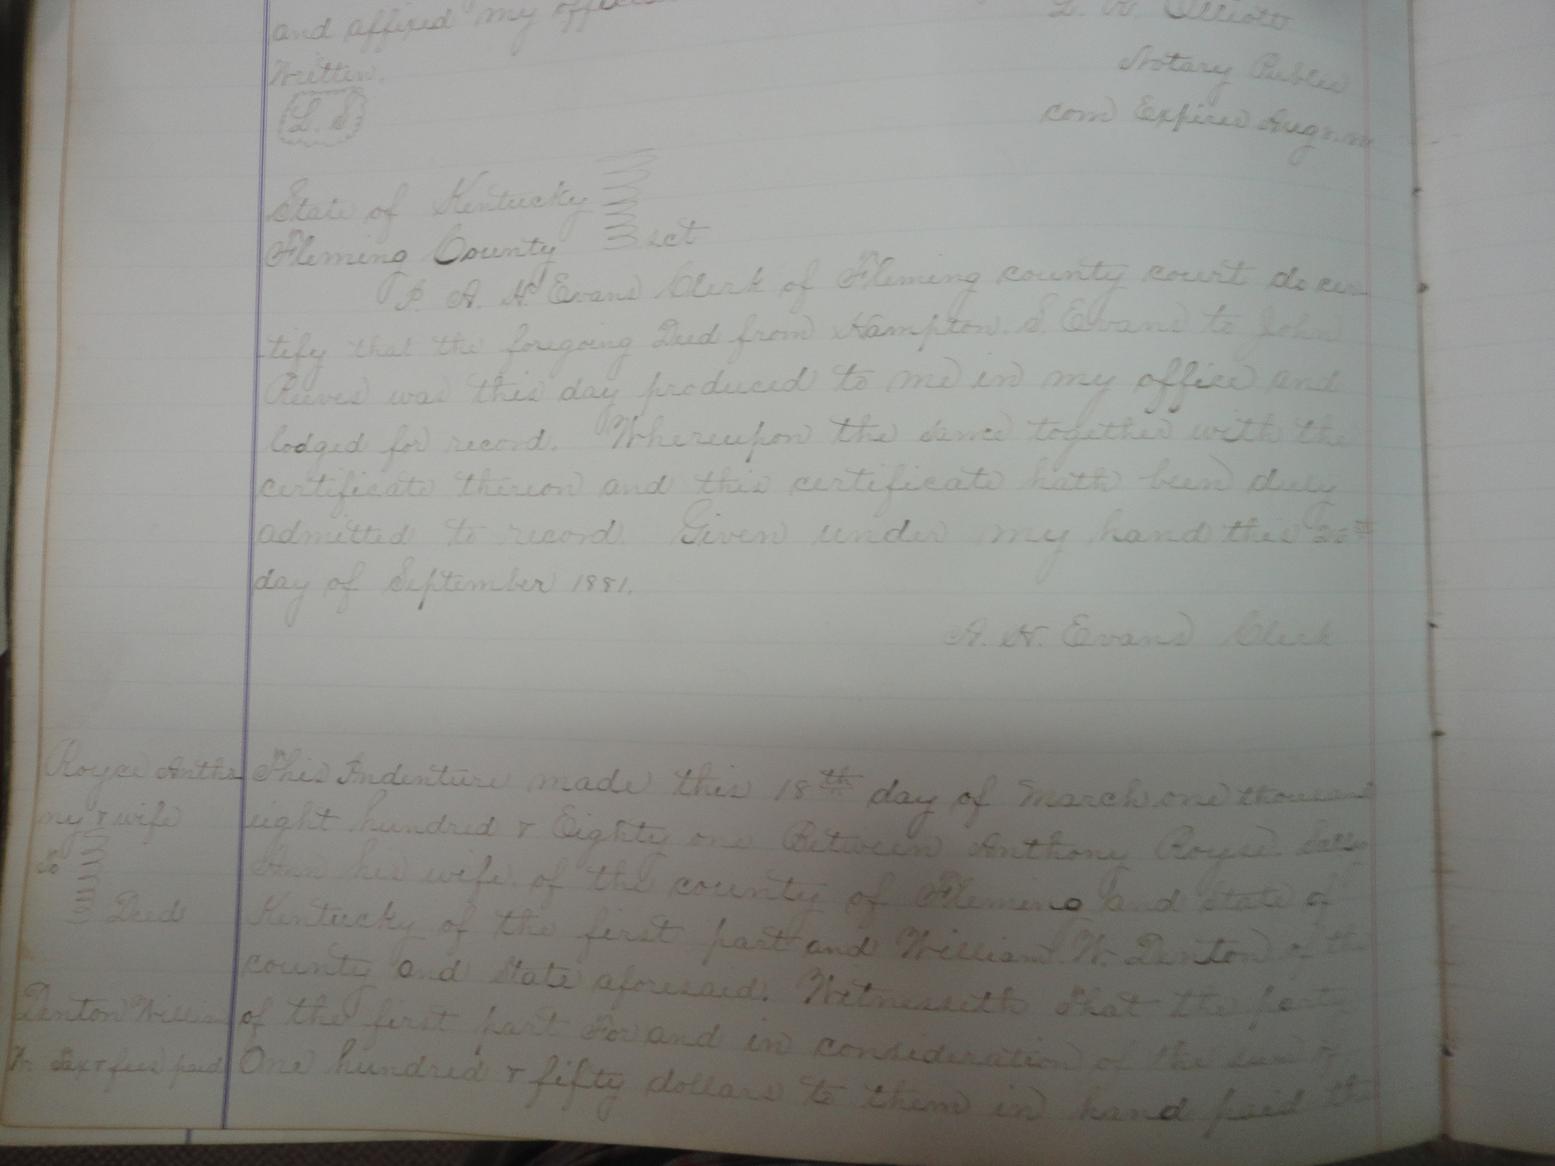 and affixed my
L. W. Elliott
Written.
Notary Public
L. S
com Expires
State of Kentucky
Fleming County sct
I. A. H Evans Clerk of Fleming county court do cer
tify that the foregoing Deed from Hampton. S. Evans to John
Reeves was this day produced to me in my office and
lodged for record. Whereupon the same together with the
certificate thereon and this certificate hath been duly
admitted to record. Given under my hand this
day of September 1881.
A. H. Evans Clerk
Royse Antho
This Indenture made this 18th day of March one thousand
ny & wife
eight hundred & Eighty one Between Anthony Royse.
to
Ann his wife of the county of Fleming and State of
Deed
Kentucky of the first part and William W. Denton of the
county and State aforesaid. Witnesseth That the party
Denton William
of the first part For and in consideration of the sum of
W. Tax & fees paid
One hundred & fifty dollars to them in hand paid the